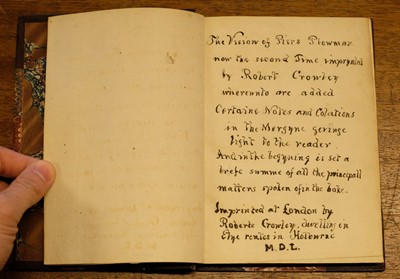 The Vision of Piers Plowman
now the second Time imprynted
by Robert Crowley
whereunto are added
Certaine Notes and Cotations
in the Mergyne gevinge
light to the reader.
And in the begynning is set a
brefe summe of all the principall
matters spoken of in the boke.
Imprinted at London by
Roberte Crowley, dwelling in
Elye rentes in Holburne
M.D.L.